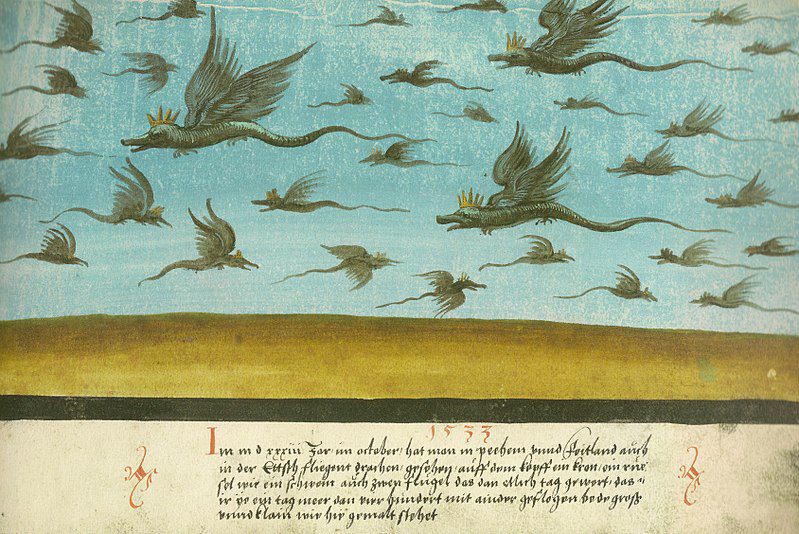 1533
Im m d xxxiii Jar im october, hat man in pechem vnnd Foitland auch
in der Ettsch fliegent drachen gesehen, auff dem kopff ein kron, ein rue¬
sel wie ein schwein auch zwen flugel das dan etlich tag gewert, das
ir vo ein tag meer dan vier hundert mit ainder geflogen bede groß
vnnd klain wie hie gemalt stehet